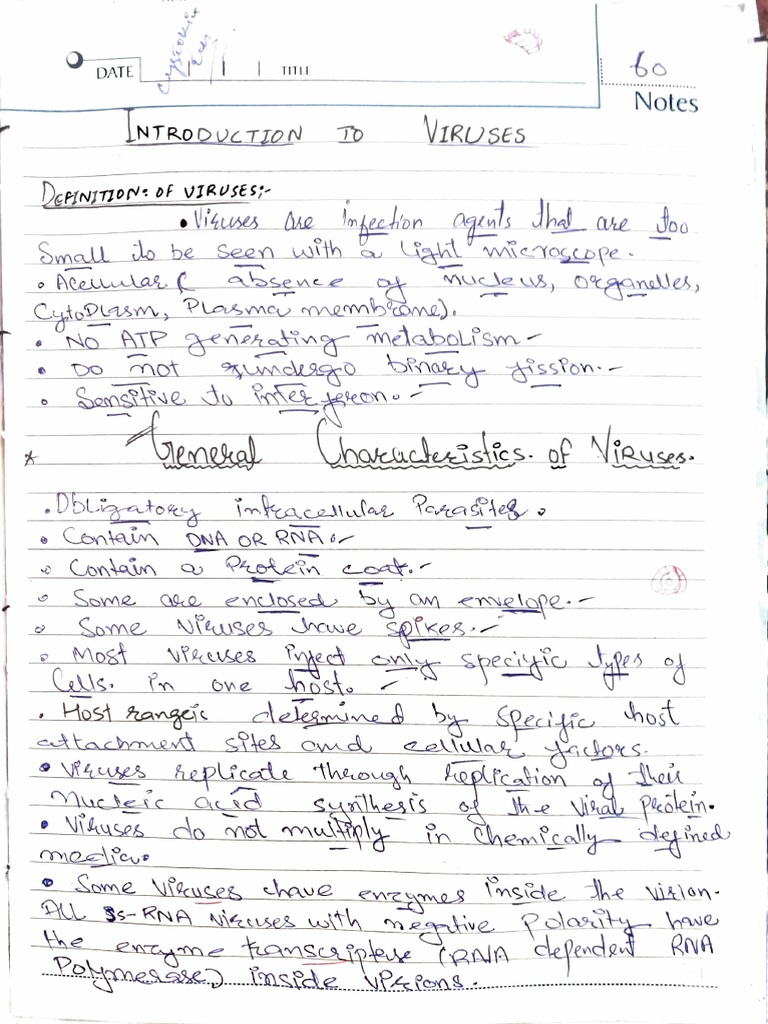 DATE
TITLE
60
Notes
INTRODUCTION TO VIRUSES
DEFINITION: OF VIRUSES:-
• Viruses are infection agents that are too
Small to be seen with a light microscope.
• Acellular ( absence of nucleus, organelles,
CytoPlasm, Plasma membrane).
• NO ATP generating metabolism-
• Do not undergo binary fission.-
• Sensitive to interferon.-
* General Characteristics. of Viruses.
• Obligatory intracellular Parasites.
• Contain DNA OR RNA.-
• Contain a Protein coat.-
• Some are enclosed by an envelope.-
• Some Viruses have spikes.-
• Most viruses infect only specific types of
Cells. in one host.-
• Host range is determined by specific host
attachment sites and cellular factors.
• Viruses replicate through replication of their
Nucleic acid synthesis of the viral protein.
• Viruses do not multiply in chemically defined
media.
• Some viruses have enzymes inside the virion.
ALL ss-RNA viruses with negative polarity have
the enzyme transcriptese (RNA dependent RNA
Polymerase) inside virions.